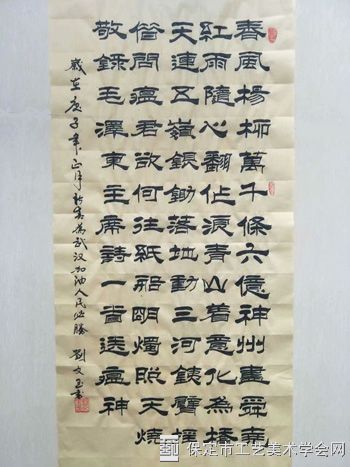 春風楊柳萬千條六億神州盡舜堯
紅雨隨心翻作浪青山着意化為橋
天連五嶺銀鋤落地動三河鐵臂搖
借問瘟君欲何往紙船明燭照天燒
敬録毛澤東主席詩一首送瘟神
歲在庚子年正月新春為武汉加油人民必勝 劉文玉書
保定市工艺美术学会网